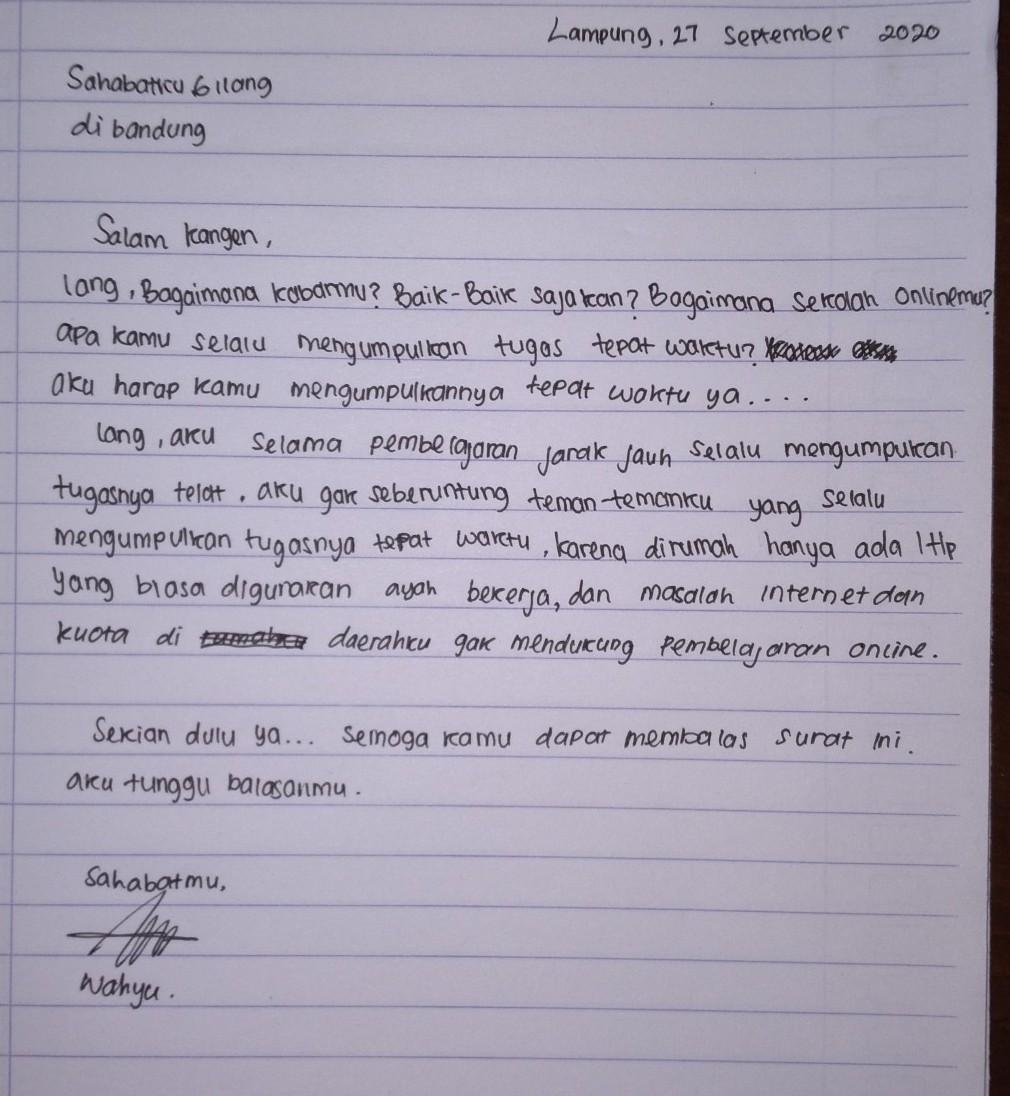 Lampung, 27 September 2020
Sahabatku Gilang
di bandung
Salam kangen,
lang, Bagaimana kabarmu? Baik-Baik saja kan? Bagaimana sekolah onlinemu?
apa kamu selalu mengumpulkan tugas tepat waktu?
aku harap kamu mengumpulkannya tepat waktu ya....
lang, aku selama pembelajaran jarak jauh selalu mengumpukan
tugasnya telat. aku gak seberuntung teman-temanku yang selalu
mengumpulkan tugasnya tepat waktu, karena dirumah hanya ada 1 Hp
yang biasa digunakan ayah bekerja, dan masalah internet dan
kuota di daerahku gak mendukung pembelajaran online.
Sekian dulu ya... semoga kamu dapat membalas surat ini.
aku tunggu balasanmu.
Sahabatmu,
Wahyu.